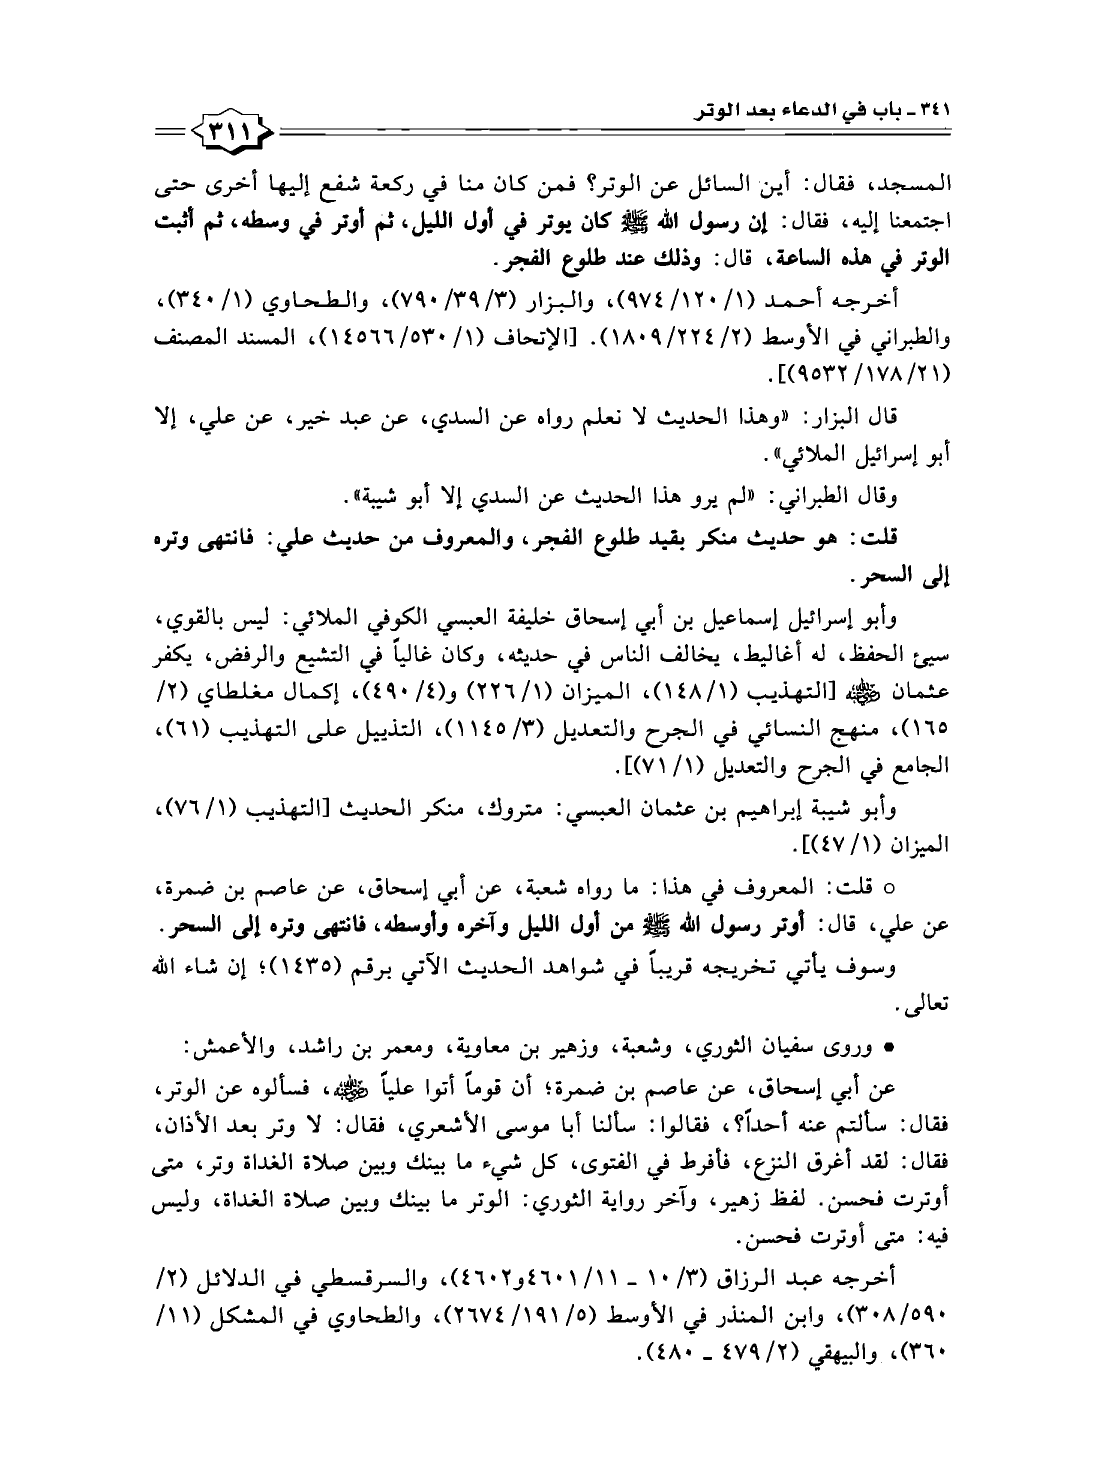 ٣٤١ ـ باب في الدعاء بعد الوتر
٣١١
المسجد، فقال: أين السائل عن الوتر؟ فمن كان منا في ركعة شفع إليها أخرى حتى
اجتمعنا إليه، فقال: إن رسول الله ﷺ كان يوتر في أول الليل، ثم أوتر في وسطه، ثم أثبت
الوتر في هذه الساعة، قال: وذلك عند طلوع الفجر.
أخرجه أحمد (١/ ١٢٠/ ٩٧٤)، والبزار (٣/ ٣٩/ ٧٩٠)، والطحاوي (١/ ٣٤٠)،
والطبراني في الأوسط (٢/ ٢٢٤/ ١٨٠٩). [الإتحاف (١/ ٥٣٠/ ١٤٥٦٦)، المسند المصنف
(٢١/ ١٧٨/ ٩٥٣٢)].
قال البزار: «وهذا الحديث لا نعلم رواه عن السدي، عن عبد خير، عن علي، إلا
أبو إسرائيل الملائي».
وقال الطبراني: «لم يرو هذا الحديث عن السدي إلا أبو شيبة».
قلت: هو حديث منكر بقيد طلوع الفجر، والمعروف من حديث علي: فانتهى وتره
إلى السحر.
وأبو إسرائيل إسماعيل بن أبي إسحاق خليفة العبسي الكوفي الملائي: ليس بالقوي،
سيئ الحفظ، له أغاليط، يخالف الناس في حديثه، وكان غالياً في التشيع والرفض، يكفر
عثمان رضي الله عنه [التهذيب (١/ ١٤٨)، الميزان (١/ ٢٢٦) و(٤/ ٤٩٠)، إكمال مغلطاي (٢/
١٦٥)، منهج النسائي في الجرح والتعديل (٣/ ١١٤٥)، التذييل على التهذيب (٦١)،
الجامع في الجرح والتعديل (١/ ٧١)].
وأبو شيبة إبراهيم بن عثمان العبسي: متروك، منكر الحديث [التهذيب (١/ ٧٦)،
الميزان (١/ ٤٧)].
○ قلت: المعروف في هذا: ما رواه شعبة، عن أبي إسحاق، عن عاصم بن ضمرة،
عن علي، قال: أوتر رسول الله ﷺ من أول الليل وآخره وأوسطه، فانتهى وتره إلى السحر.
وسوف يأتي تخريجه قريباً في شواهد الحديث الآتي برقم (١٤٣٥)؛ إن شاء الله
تعالى.
• وروى سفيان الثوري، وشعبة، وزهير بن معاوية، ومعمر بن راشد، والأعمش:
عن أبي إسحاق، عن عاصم بن ضمرة؛ أن قوماً أتوا علياً رضي الله عنه، فسألوه عن الوتر،
فقال: سألتم عنه أحداً؟، فقالوا: سألنا أبا موسى الأشعري، فقال: لا وتر بعد الأذان،
فقال: لقد أغرق النزع، فأفرط في الفتوى، كل شيء ما بينك وبين صلاة الغداة وتر، متى
أوترت فحسن. لفظ زهير، وآخر رواية الثوري: الوتر ما بينك وبين صلاة الغداة، وليس
فيه: متى أوترت فحسن.
أخرجه عبد الرزاق (٣/ ١٠ ـ ١١/ ٤٦٠١و٤٦٠٢)، والسرقسطي في الدلائل (٢/
٥٩٠/ ٣٠٨)، وابن المنذر في الأوسط (٥/ ١٩١/ ٢٦٧٤)، والطحاوي في المشكل (١١/
٣٦٠)، والبيهقي (٢/ ٤٧٩ ـ ٤٨٠).